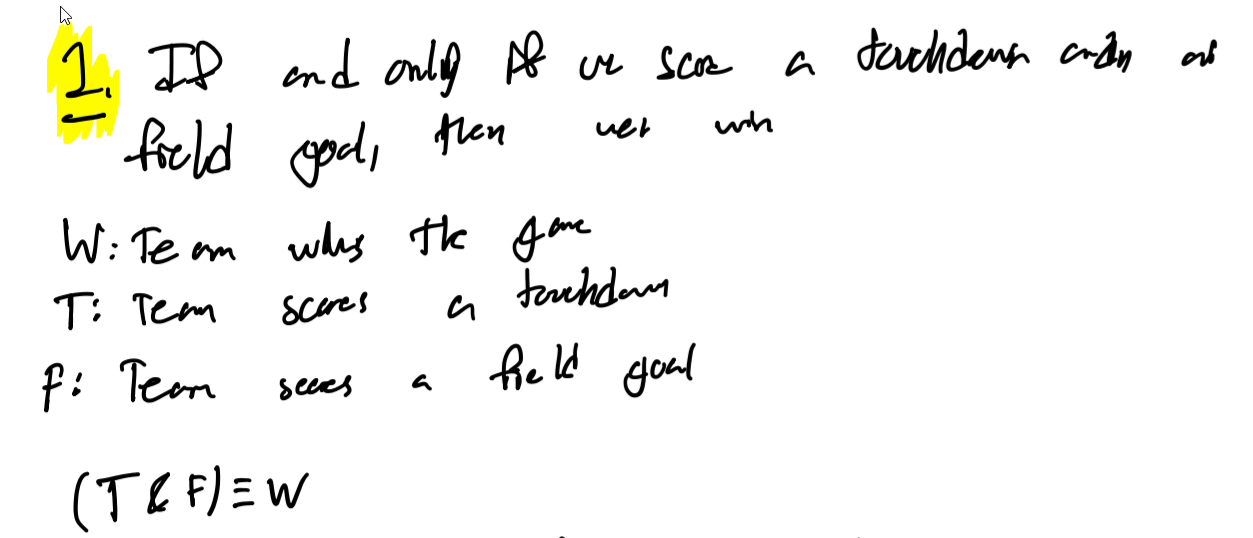 1. If and only if we score a touchdown and a
field goal, then we win
W: Team wins the game
T: Team scores a touchdown
F: Team scores a field goal
(T & F) ≡ W